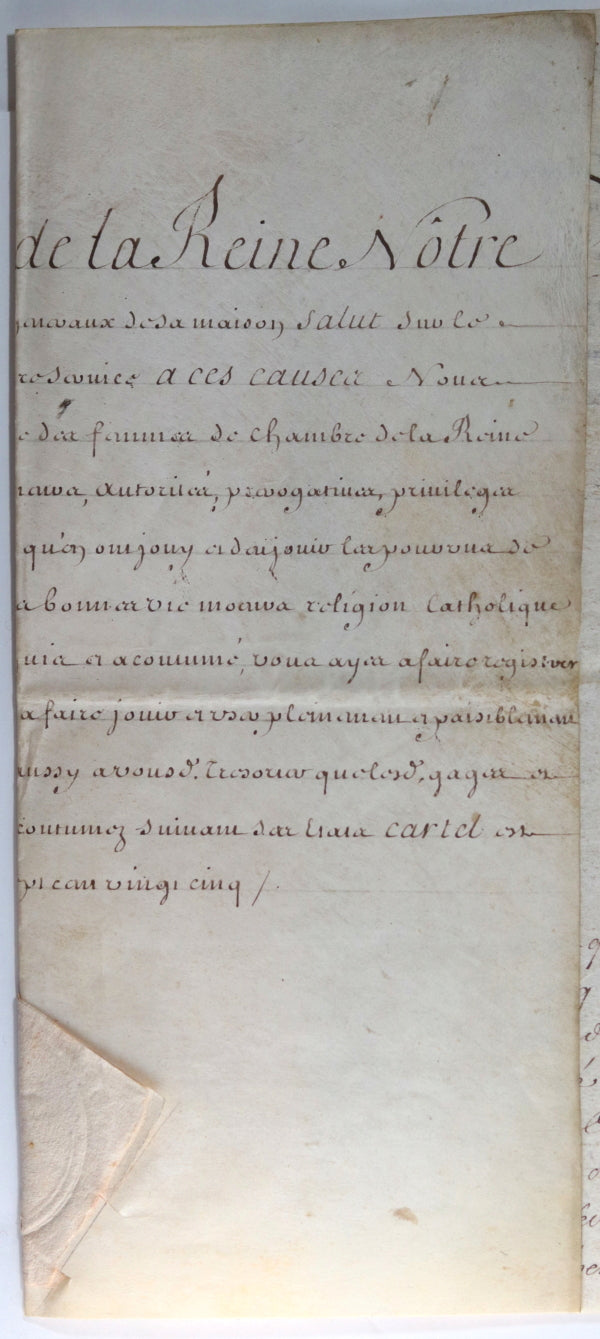 de la Reine Nôtre
de sa maison Salut sur le
a ces causes Nous
des femmes de chambre de la Reine
autoritéz, prerogatives, privileges
qu'en ont jouy et doit jouir les pourvus de
bonnes vie moeurs religion Catholique
et acoutumé, vous ayez a faire registrer
a faire jouir et user plainement et paisiblement
aussy a vous d. Tresorier que lesd. gages et
coutumez suivant ses Etats car tel est
vingt cinq /.